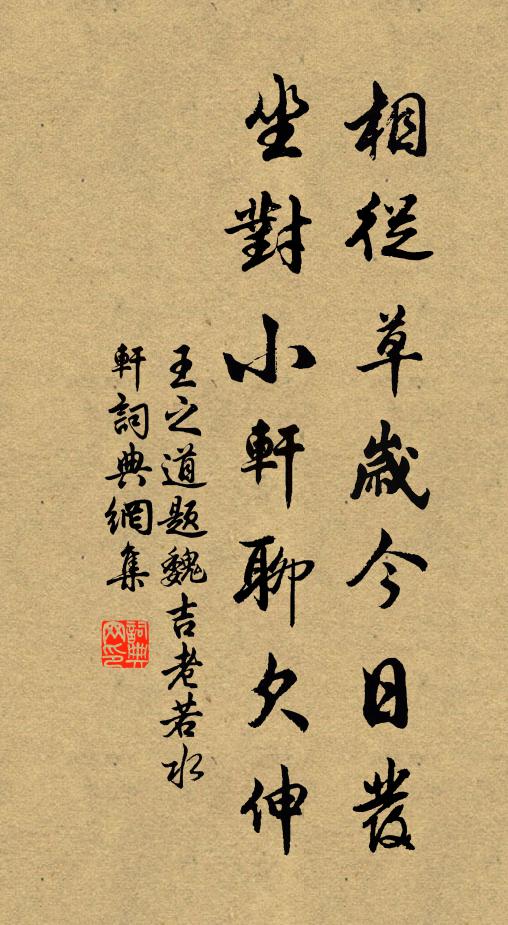 相從草歲今日發
坐對小軒聊欠伸
王之道题魏吉老若水
軒詞典網集
詞典
网印